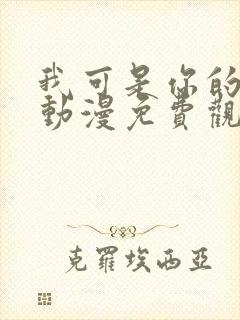 我可是你的
動漫免費觀
克羅埃西亞